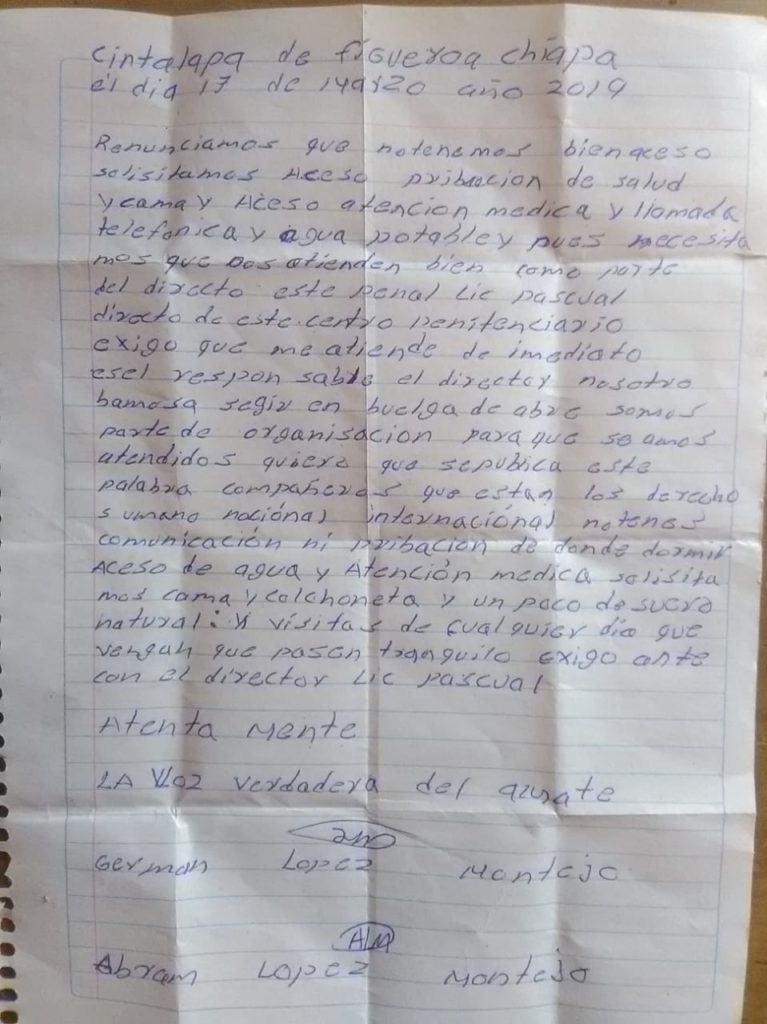 Cintalapa de figueroa chiapa
el dia 17 de Marzo año 2019
Renunciamos que notenemos bien aceso
solisitamos Aceso pribacion de salud
y cama y Aceso atencion medica y llamada
telefonica y agua potable y pues necesita
mos que nos atienden bien como parte
del directo este penal Lic pascual
directo de este centro penitenciario
exigo que me atiende de imediato
esel respon sable el director nosotro
bamosa segir en buelga de abre somos
parte de organisacion para que seamos
atendidos quiero que sepublica este
palabra compañeros que estan los derecho
s umano naciónal internaciónal notenes
comunicación ni pribacion de donde dormir
Aceso de agua y Atención medica solisita
mos cama y colchoneta y un poco de suero
natural: y vísitas de cualquier dia que
vengan que pasen tranquilo exigo ante
con el director Lic pascual
Atenta Mente
LA Voz verdadera del amate
German Lopez Montejo
ALM
Abram Lopez Montejo